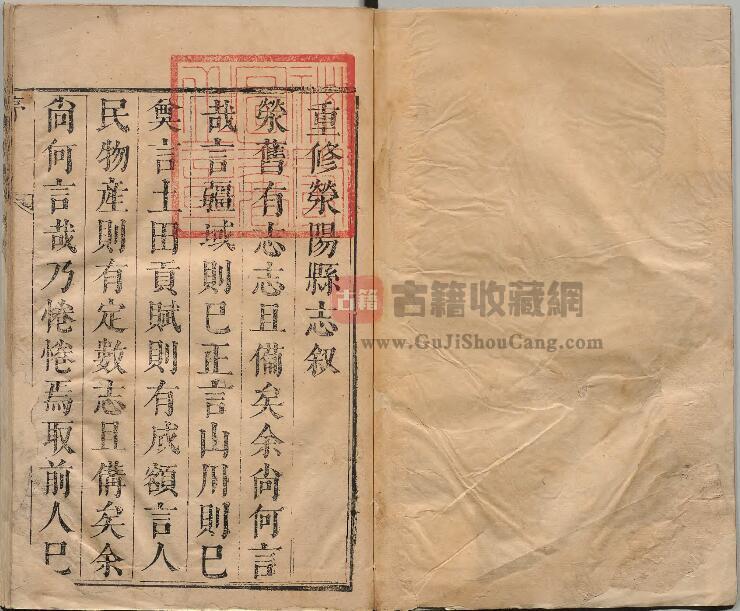 重修滎陽縣志叙
滎舊有志志且備矣余尙何言
哉言疆域則已正言山川則已
奠言土田貢賦則有成額言人
民物產則有定數志且備矣余
尙何言哉乃惓惓焉取前人已
古籍 古籍收藏網
www.GuJiShouCang.com